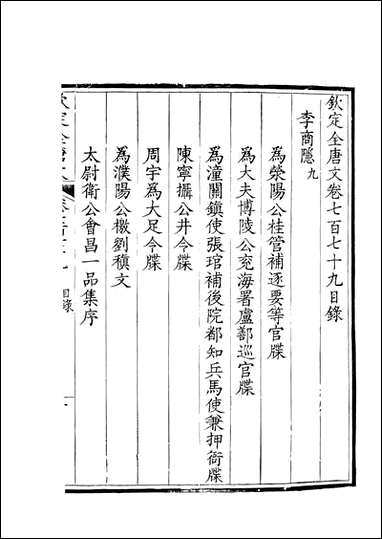 欽定全唐文卷七百七十九目錄
李商隱九
為滎陽公桂管補逐要等官牒
為大夫博陵公兗海署盧鄯巡官牒
為潼關鎮使張琯補後院都知兵馬使兼押衙牒
陳寧攝公井令牒
周宇為大足令牒
為濮陽公檄劉稹文
太尉衛公會昌一品集序
目錄